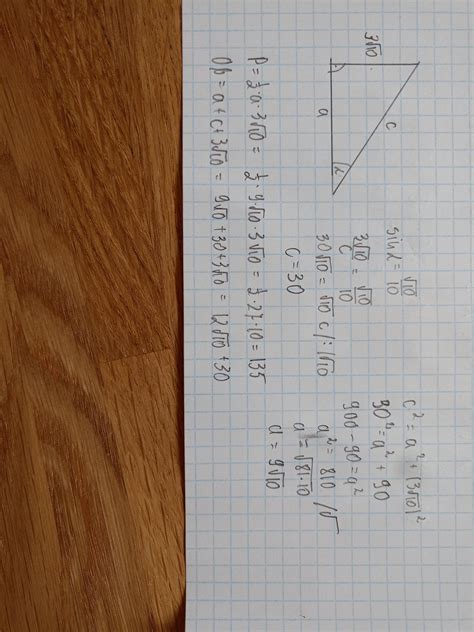 3√10
c
a
α
sin α = √10/10
3√10/c = √10/10
30√10 = √10 c /: √10
c = 30
c² = a² + (3√10)²
30² = a² + 90
900 - 90 = a²
a² = 810 /√
a = √81·10
a = 9√10
P = ½ · a · 3√10 = ½ · 9√10 · 3√10 = ½ · 27 · 10 = 135
Op = a + c + 3√10 = 9√10 + 30 + 3√10 = 12√10 + 30